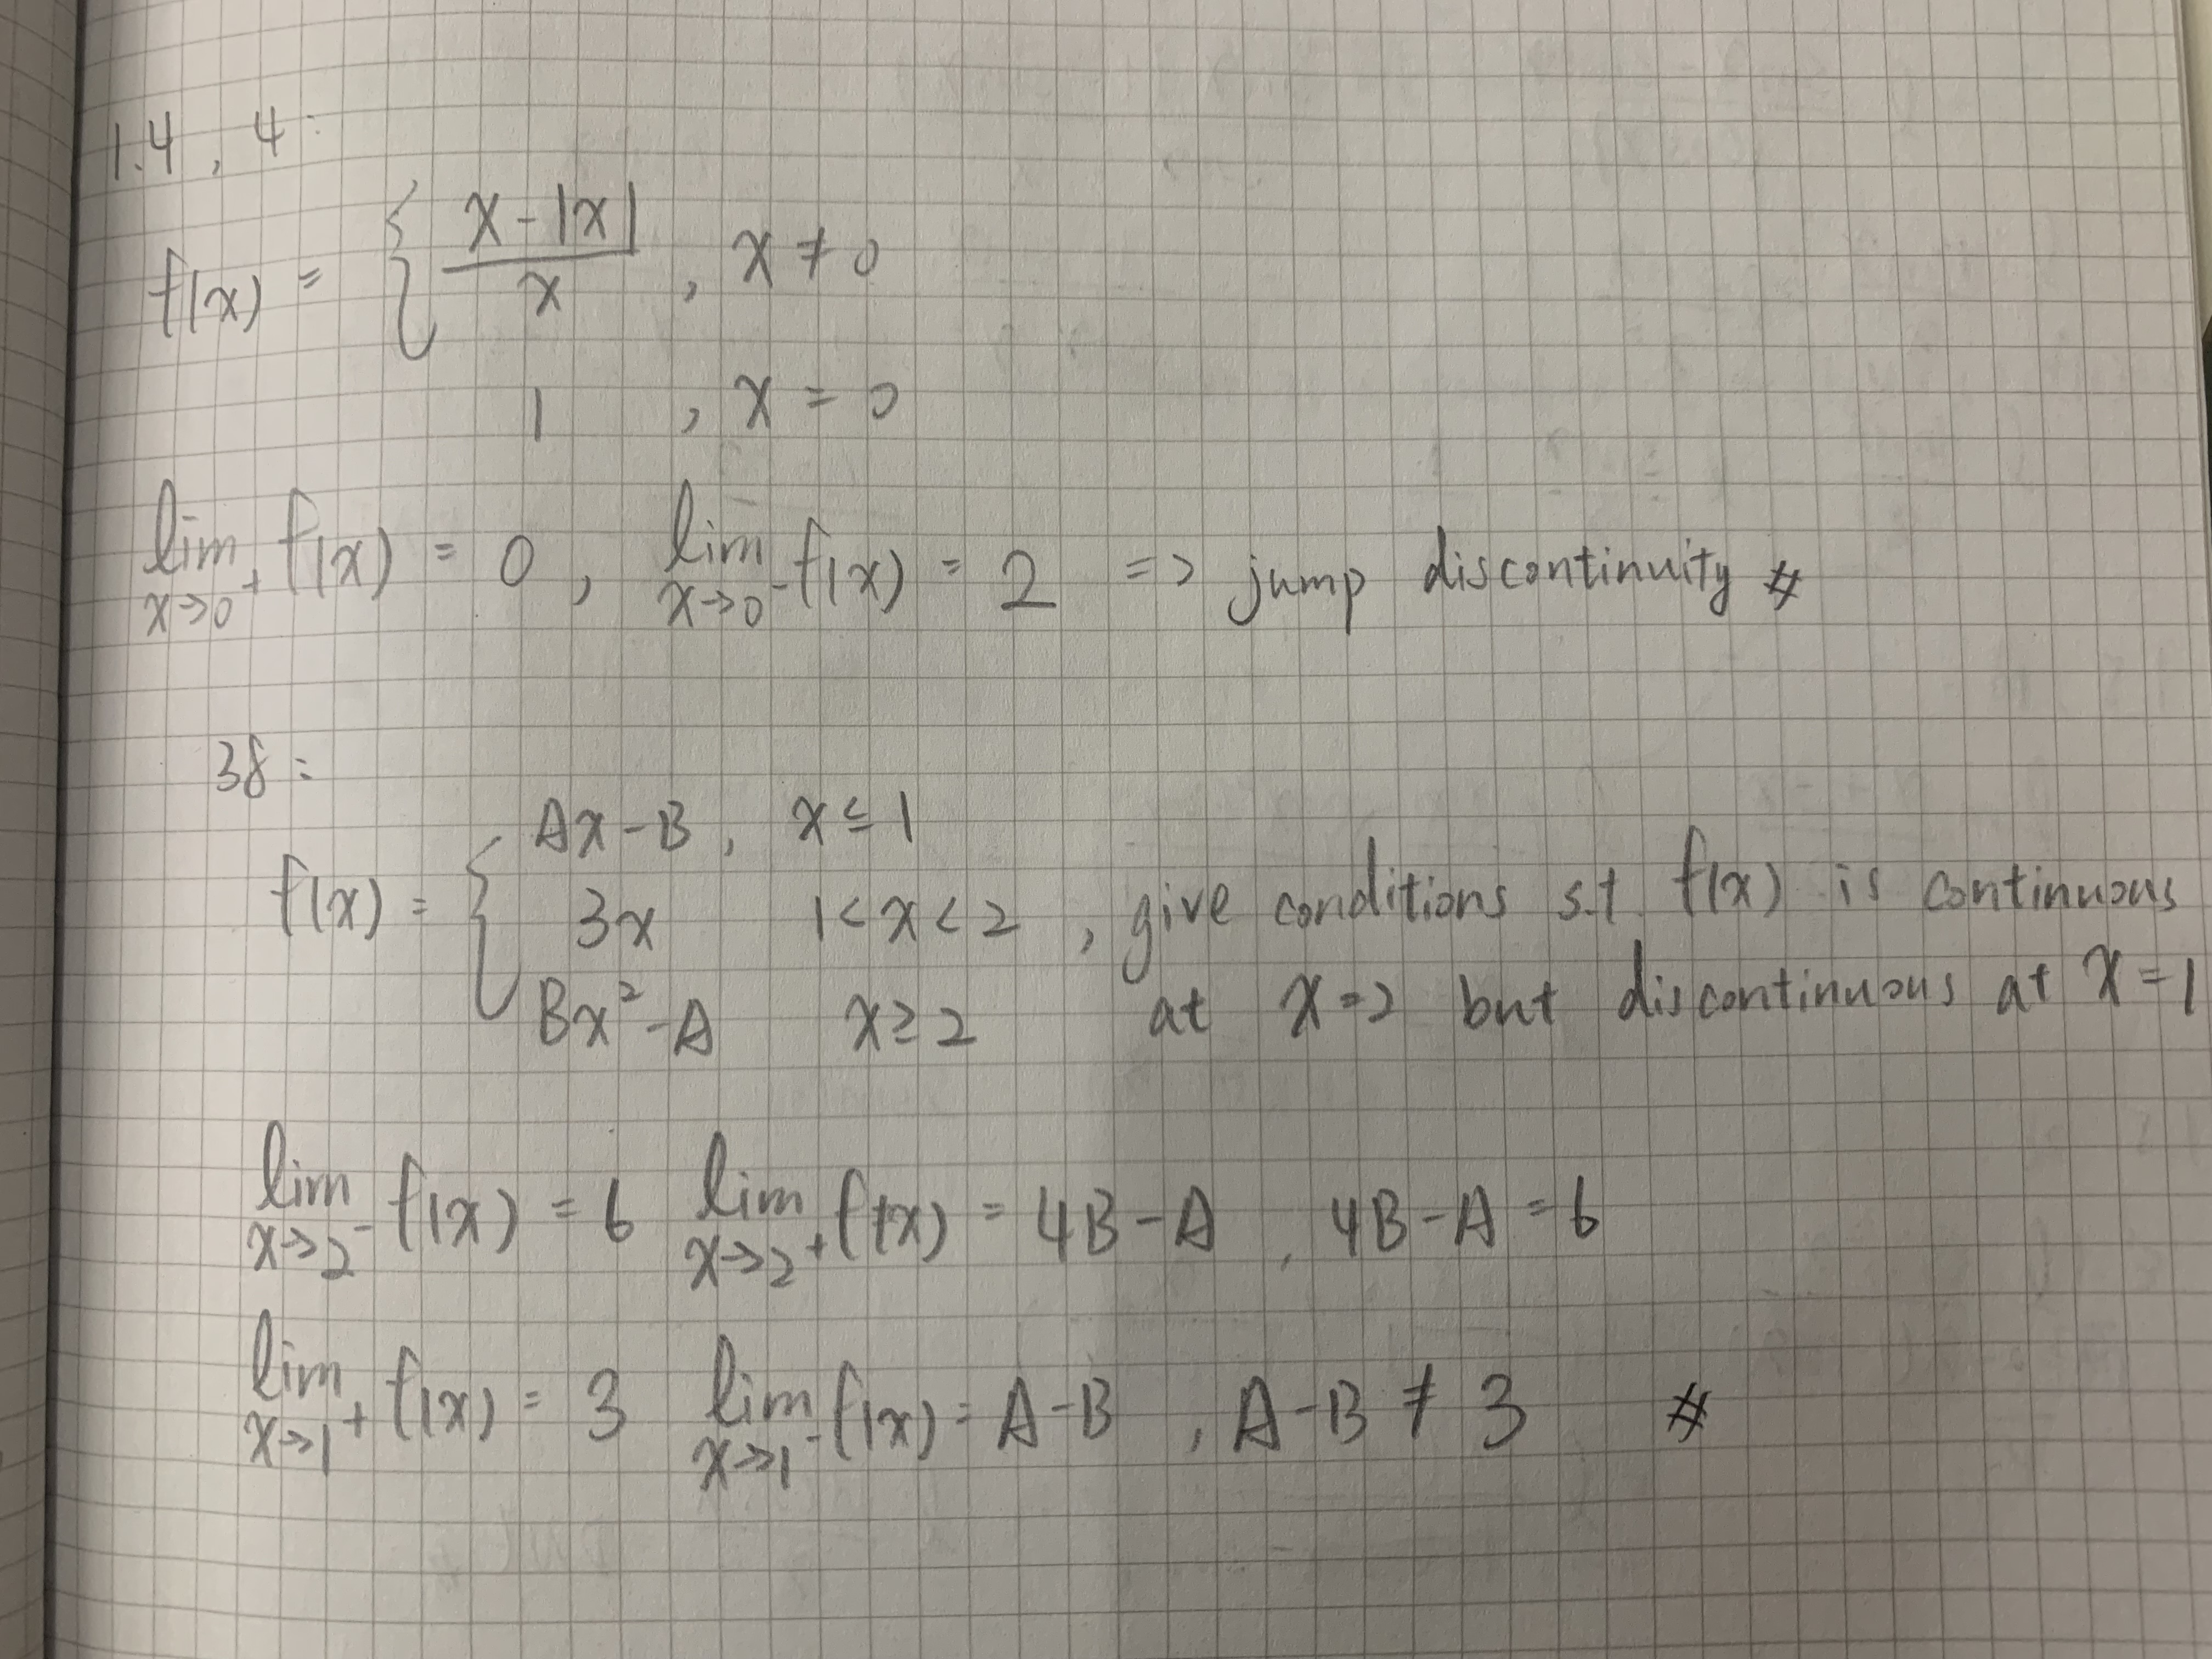 1.4, 4:
f(x) = { (x-|x|)/x , x ≠ 0
1 , x = 0
lim x→0⁺ f(x) = 0, lim x→0⁻ f(x) = 2 => jump discontinuity #
38:
Ax-B, x ≤ 1
f(x) = { 3x 1<x<2, give conditions s.t f(x) is continuous
Bx²-A x≥2 at x=2 but discontinuous at x=1
lim x→2⁻ f(x) = 6 lim x→2⁺ f(x) = 4B-A, 4B-A=6
lim x→1⁺ f(x) = 3 lim x→1⁻ f(x) = A-B, A-B ≠ 3 #